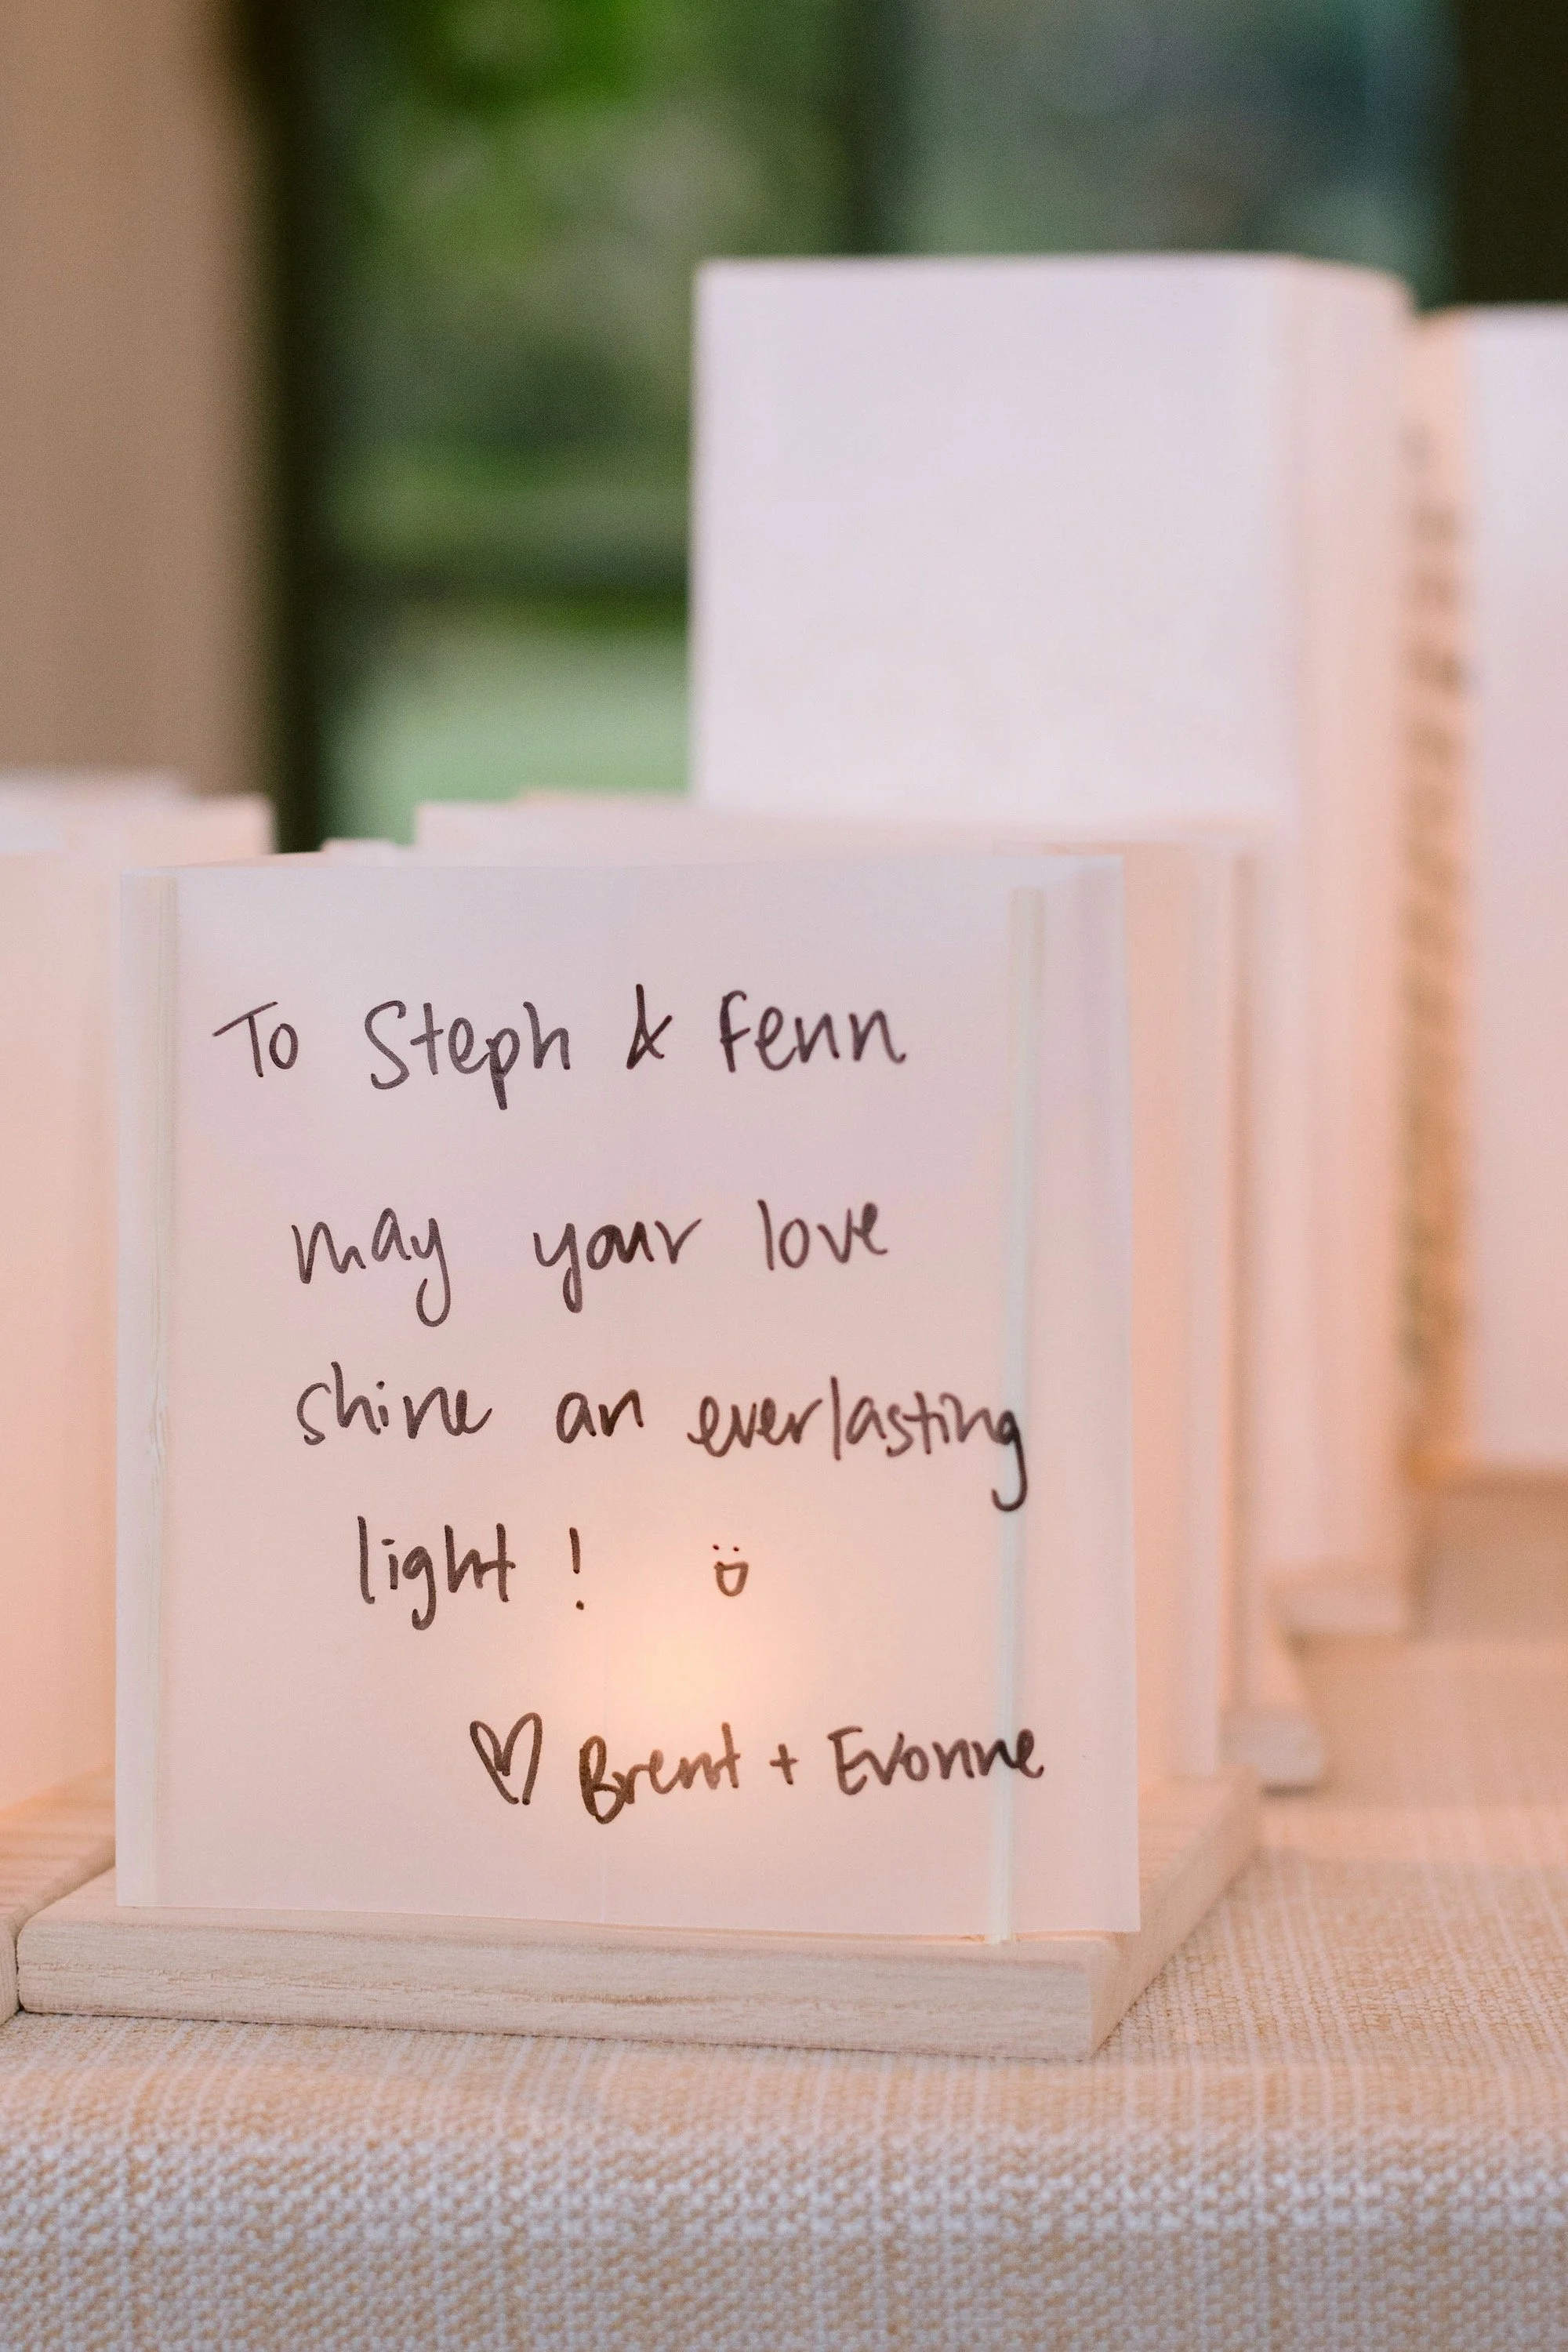 To Steph & Fenn
may your love
shine an everlasting
light!
♡ Brent + Evonne